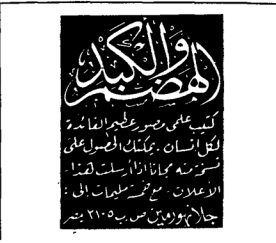 الهضم والكبد
كتيب علمى ومصور عظيم الفائدة
لكل انسان . يمكنك الحصول على
نسخة منه مجانا اذا أرسلت هذا
الأعلان . مع خمسة مليمات الى :
جلانهورمين ص . ب ٢١٠٥ مصر